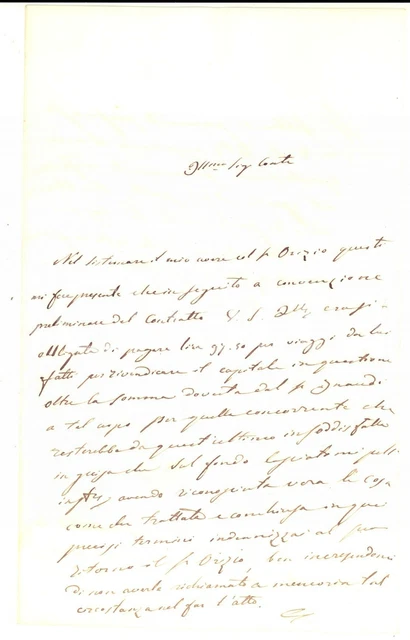 Illmo Sig Conte
Nel sistemare il mio avere col S. Orizio questi
mi fece presente che in seguito a convenzione
preliminare del Contratto V. S. Illma erasi
obbligata di pagare lire 97.50 per viaggi da lui
fatti per rivendicare il capitale in questione
oltre la somma dovuta dal S.
a tal uopo per quella concorrente che
resterebbe da quest'ultimo insoddisfatta
in guisa che sul fondo
avendo riconosciuta vera la cosa
come che trattata e conchiusa in quei
precisi termini indennizzai al suo
ritorno il S. Orizio, ben
di non averlo richiamato a memoria tal
circostanza nel far l'atto.